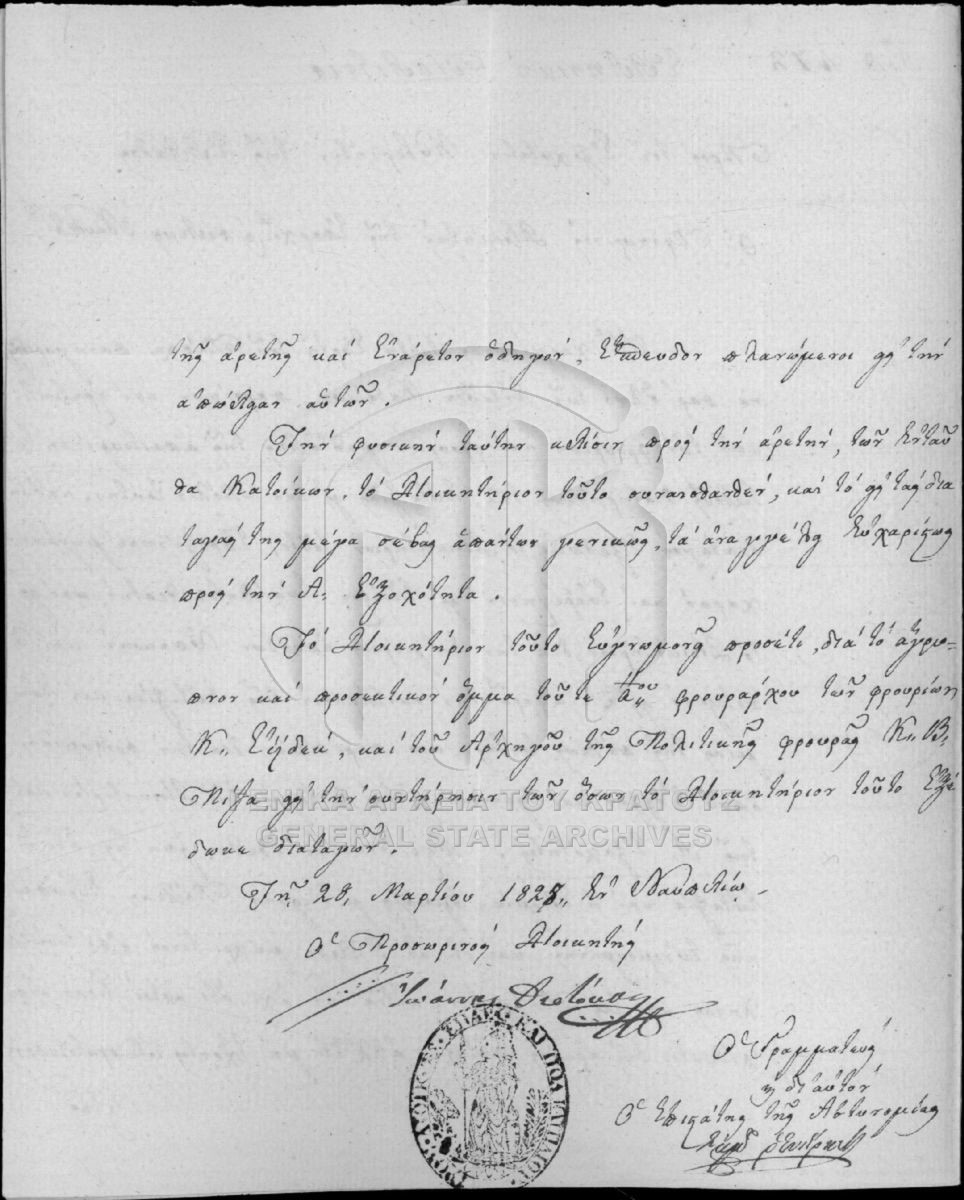 τῆς ἀρετῆς καὶ ἐνάρετον ὁδηγόν, ἔσπευδον πλανώμενοι εἰς τὴν
ἀπώλειαν αὐτῶν.
Τὴν φυσικὴν ταύτην κλίσιν πρὸς τὴν ἀρετὴν, τῶν ἐνταῦ
θα Κατοίκων, τὸ Διοικητήριον τοῦτο συναισθανθὲν, καὶ τὸ εἰς τὰς δια
ταγάς της μέγα σέβας ἁπάντων γενικῶς, τὰ ἀναγγέλει εὐχαρίστως
πρὸς τὴν Α. Ἐξοχότητα.
Τὸ Διοικητήριον τοῦτο εὐγνωμονεῖ προσέτι, διὰ τὸ ἄγρυ-
πνον καὶ προσεκτικὸν ὄμμα τοῦ τε φρουράρχου τῶν φρουρίων
Κ. Ἐϋδὲκ, καὶ τοῦ Ἀρχηγοῦ τῆς Πολιτικῆς φρουρᾶς Κ. Β.
Πίζα εἰς τὴν συντήρησιν τῶν ὅσων τὸ Διοικητήριον τοῦτο ἐξέ
δωκε διαταγῶν.
Τῇ 28 Μαρτίου 1828, ἐν Ναυπλίῳ
Ὁ Προσωρινὸς Διοικητὴς
Ἰωάννης Θεοτόκης
Ὁ Γραμματεὺς
δι' αὐτὸν
Ὁ ἐπιστάτης τῆς Ἀστυνομίας
ΓΕΝΙΚΑ ΑΡΧΕΙΑ ΤΟΥ ΚΡΑΤΟΥΣ
GENERAL STATE ARCHIVES